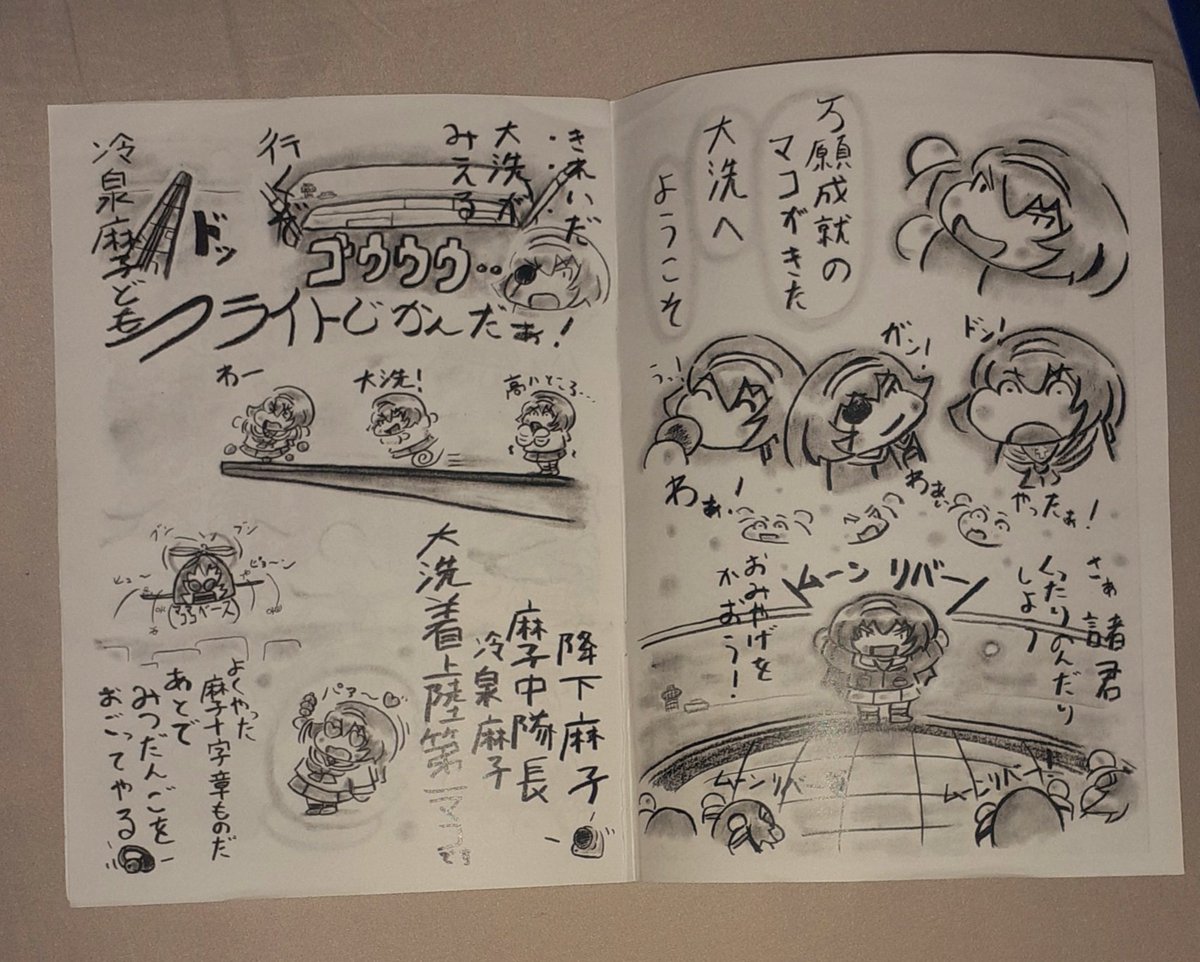 万願成就の
マコがきた
大洗へ
ようこそ
ドン!
ガン!
うっ!
やったぁ!
わぁぃ
わぁ!
さぁ諸君
くったりのんだり
しよう
ムーン リバー
おみやげを
かおう!
ムーンリバー
ムーンリバー
きれいだ・・・
大洗が
みえる・・・
行くぞ
冷泉麻子ども
ドッ
ゴゥゥゥ・・
フライトじかんだぁ!
高いところ・・・
大洗!
わー
ブン
ブン
ヒュー
ピョーン
降下麻子
麻子中隊長
冷泉麻子
大洗着上陸第一マコです
パァ〜
よくやった
麻子十字章ものだ
あとで
みつだんごを
おごってやる